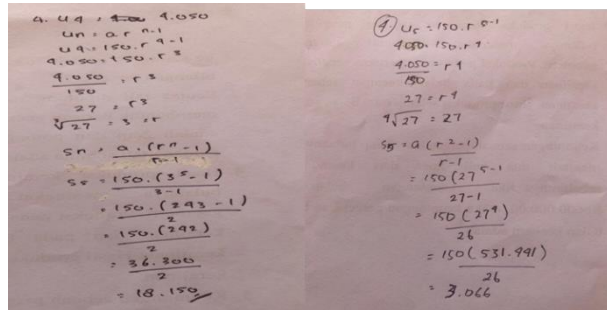 4. U4 = 4.050
Un = a r ⁿ⁻¹
U4 = 150. r ⁴⁻¹
4.050 = 150. r ³
4.050 = r ³
150
27 = r³
³√27 = 3 = r
Sn = a. (rⁿ - 1)
r-1
S5 = 150. (3⁵ - 1)
3-1
= 150. (243 - 1)
2
= 150. (242)
2
= 36.300
2
= 18.150
4 U5 = 150. r ⁵⁻¹
4050 = 150. r⁴
4.050 = r⁴
150
27 = r⁴
⁴√27 = 27
S5 = a (r² - 1)
r-1
= 150 (27 ⁵⁻¹
27-1
= 150 (27⁴)
26
= 150 (531.441)
26
= 3.066